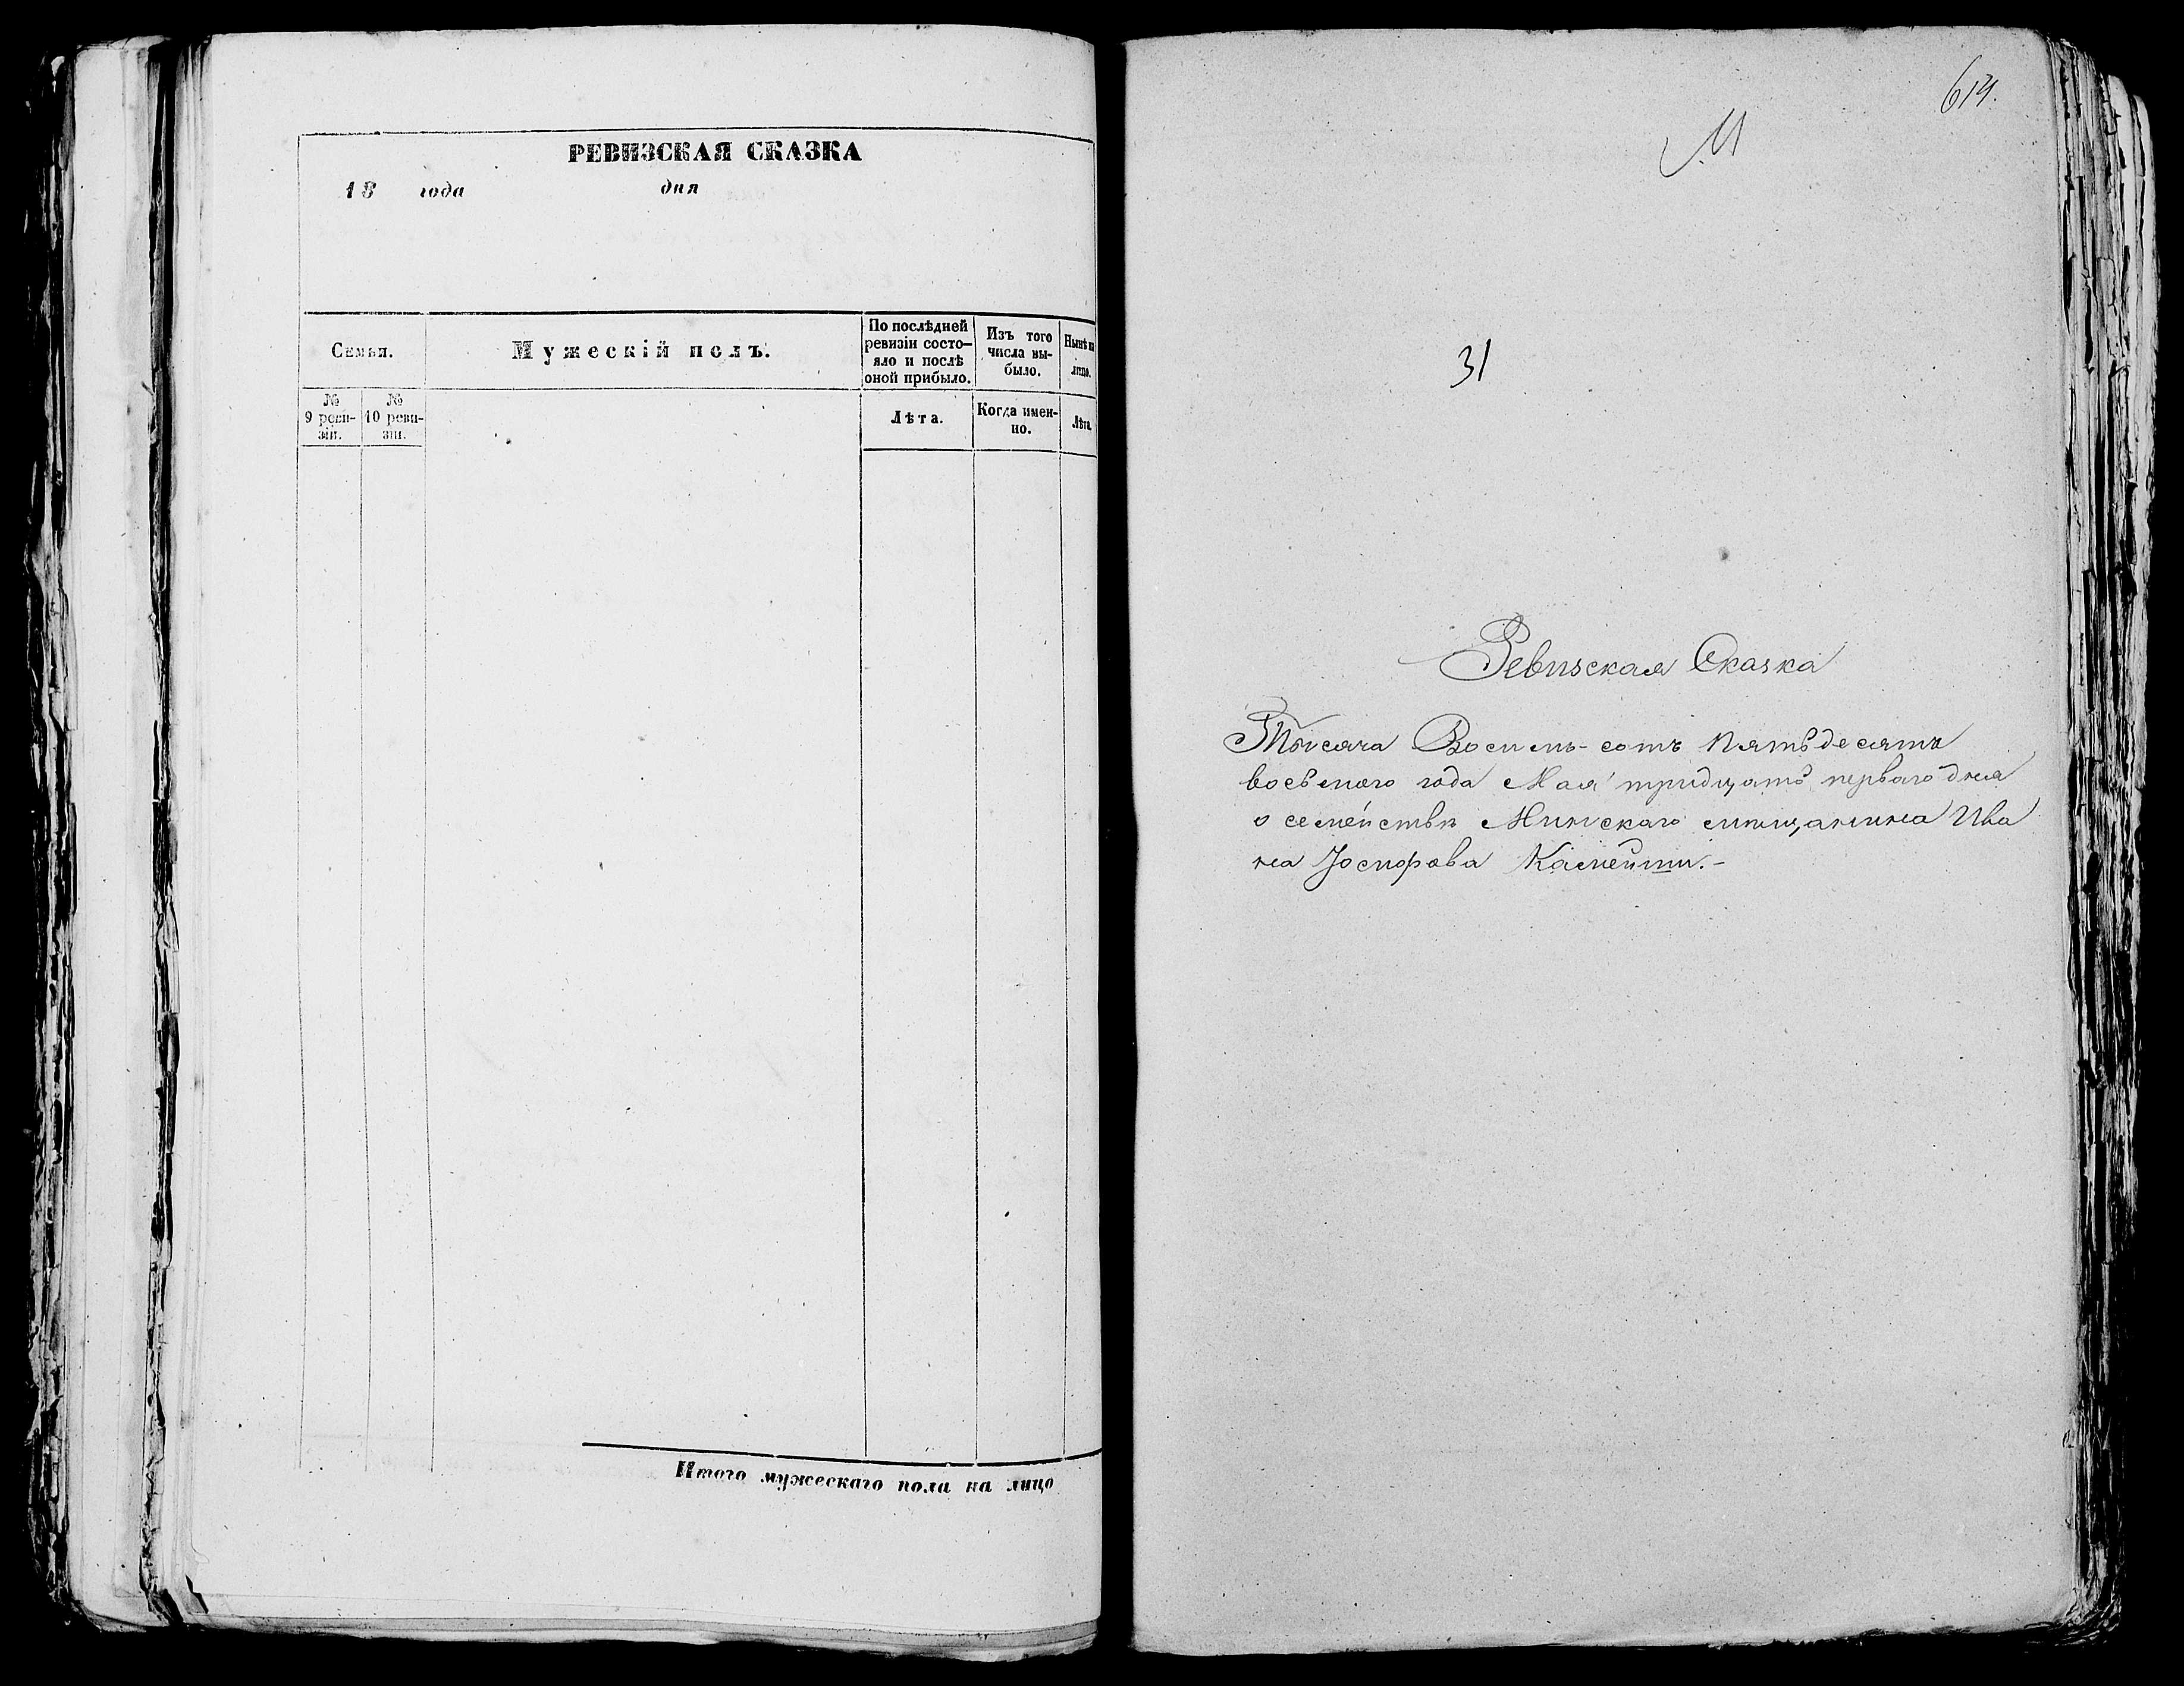 РЕВИЗСКАЯ СКАЗКА
18 года дня
Семьи.
Мужескій полъ.
По послѣдней ревизіи состо-
яло и послѣ
оной прибыло.
Изъ того
числа вы-
было.
Нынѣ на
лицо.
№
9 реви-
зіи.
№
10 реви-
зіи.
Лѣта.
Когда имен-
но.
Лѣта.
Итого мужескаго пола на лицо
М
31
Ревизская Сказка
Тысяча Восемь-сотъ Пятьдесятъ
восьмого года Мая тридцать перваго дня
о семействѣ Минскаго мѣщанина Ива
на